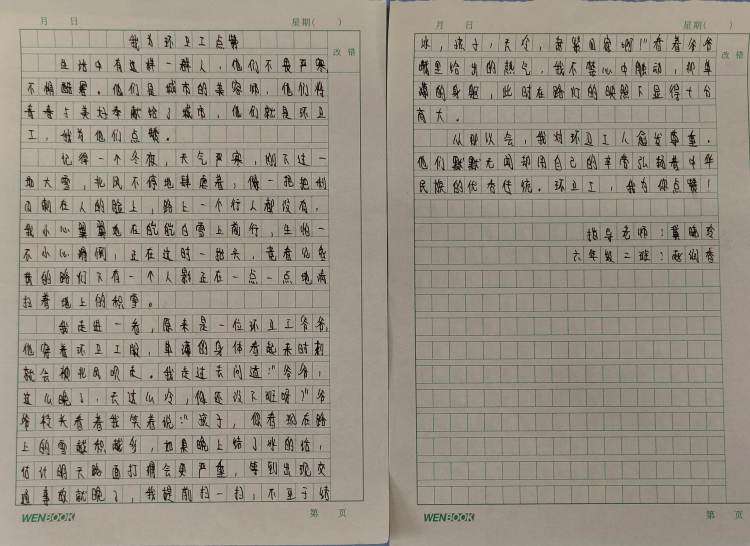 月 日 星期( )
改错
我为环卫工点赞
生活中有这样一群人，他们不畏严寒
不惧酷暑。他们是城市的美容师，他们将
青春与美好奉献给了城市，他们就是环卫
工，我为他们点赞。
记得一个冬夜，天气严寒，刚下过一
地大雪，北风不停地肆虐着，像一把把利
刃刺在人的脸上，路上一个行人都没有，
我小心翼翼地在皑皑白雪上前行，生怕一
不小心滑倒，正在这时一抬头，竟看见昏
黄的路灯下有一个人影正在一点一点地清
扫着地上的积雪。
我走进一看，原来是一位环卫工爷爷，
他穿着环卫工服，单薄的身体看起来时刻
就会被北风吹走。我走过去问道：“爷爷，
这么晚了，天这么冷，你还没下班呀？”爷
爷 着我笑着说：“孩子，你看现在路
上的雪越积越多，如果晚上结了冰的话，
估计明天路面打滑会更严重，等到出现交
通事故就晚了，我提前扫一扫，不至于结
WENBOOK
第 页
月 日 星期( )
改错
冰，孩子，天冷，赶紧回家啊！”看着爷爷
嘴里给出的热气，我不禁心中触动，那单
薄的身躯，此时在路灯的映照下显得十分
高大。
从那以会，我对环卫工人愈发尊重。
他们默默无闻却用自己的辛劳弘扬着中华
民族的优秀传统。环卫工，我为你点赞！
指导老师：冀晓玲
六年级二班：
WENBOOK
第 页